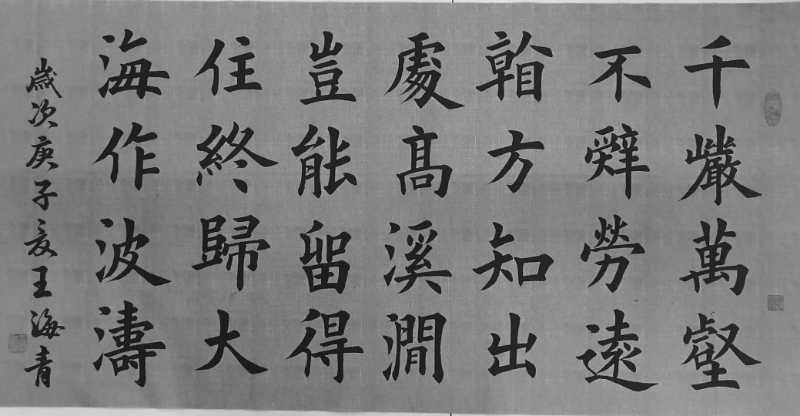 千巖萬壑
不辤勞遠
看方知出
處髙溪澗
豈能留得
住終歸大
海作波濤
歲次庚子夏王海青